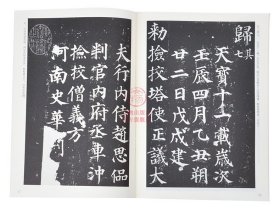 歸其七
天寶十一載歲次
壬辰四月乙丑朔
廿二日戊戌建
勑撿挍塔使正議大
夫行内侍趙思偘
判官内府丞車沖
撿挍僧義方
河南史華